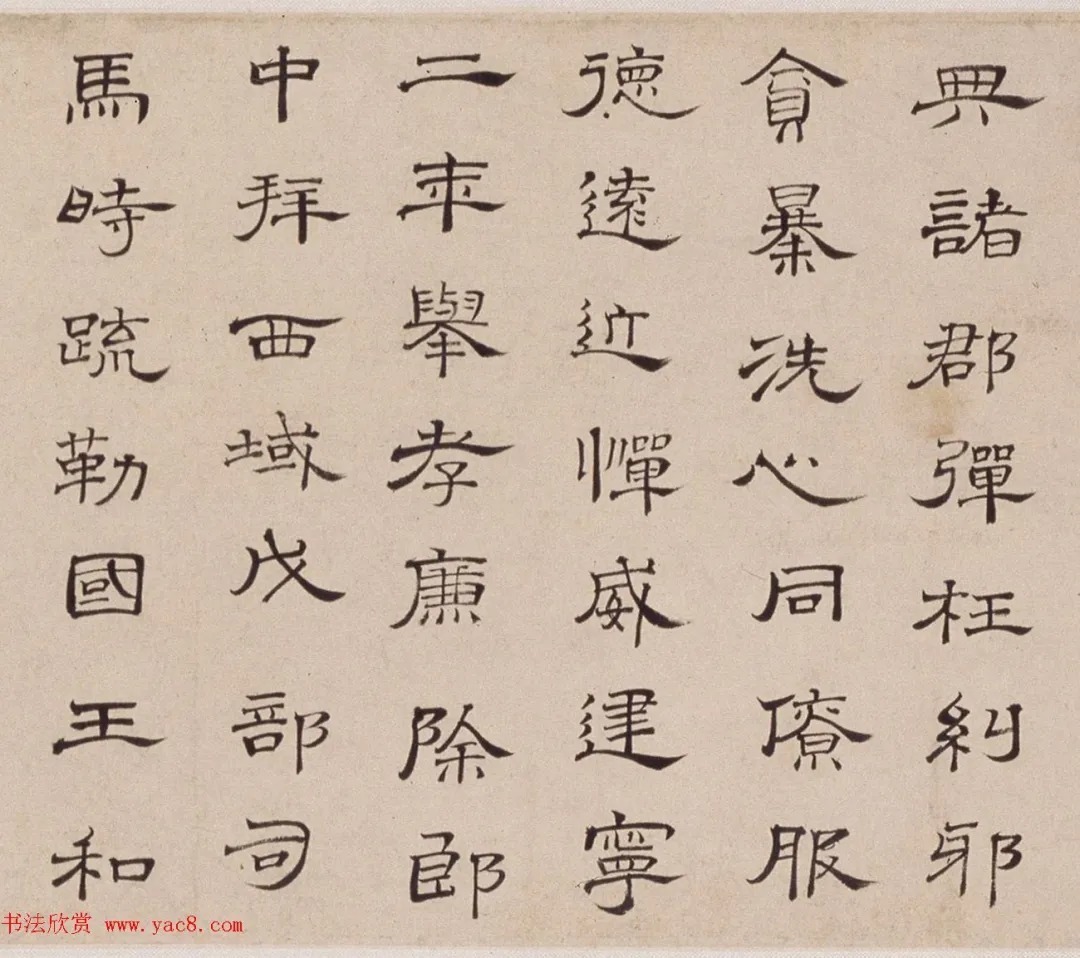 典諸郡彈枉糾邪
貪暴洗心同僚服
德遠近憚威建寧
二年舉孝廉除郎
中拜西域戊部司
馬時疏勒國王和
书法欣赏 www.yac8.com